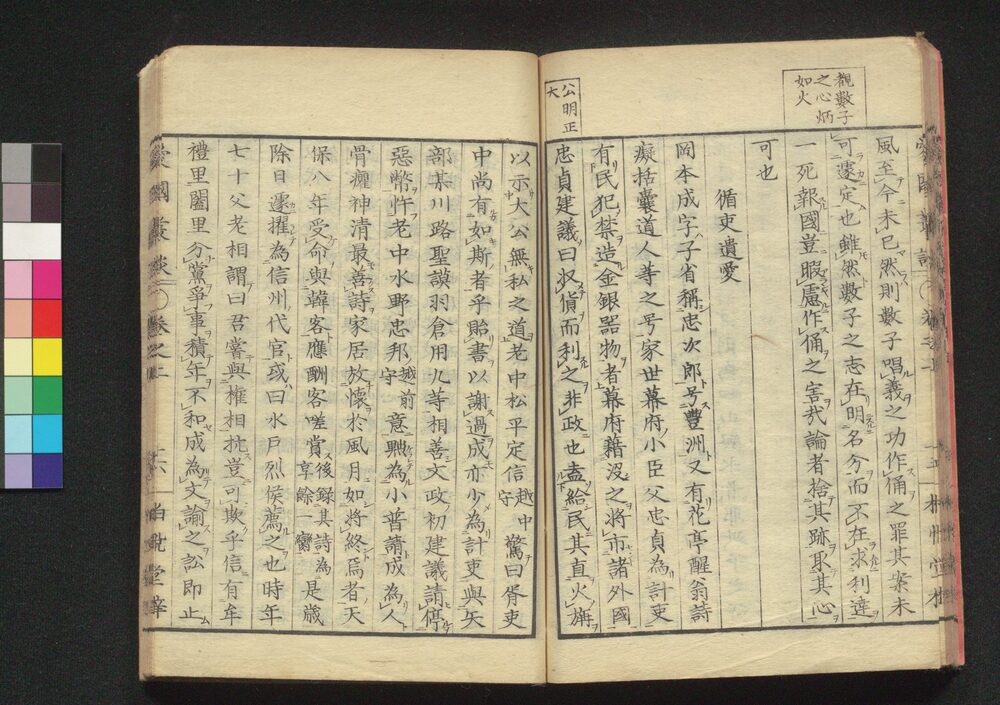 観數子
之心炳
如火
風至今未已然則數子唱義之功作俑之罪其案未
可遽定也雖然數子之志在明名分而不在求利達
一死報國豈暇慮作俑之害哉論者捨其跡取其心
可也
循吏遺愛
岡本成字子省稱忠次郎号豊洲又有花亭醒翁詩
癡括囊道人等之号家世幕府小臣父忠貞為計吏
有民犯禁造金銀器物者幕府籍沒之將市諸外國
公明正
大
忠貞建議曰奴貨而利之非政也盍給民其直火旃
以示大公無私之道老中松平定信越中守驚曰胥吏
中尚有如斯者乎貽書以謝過成亦少為計吏與矢
部某川路聖謨羽倉用九等相善文政初建議請停
惡幣忤老中水野忠邦越前守意黜為小普請成為人
骨癯神清最善詩家居放懷於風月如將終焉者天
保八年受命與韓客應酬客嗟賞後録其詩為享餘一臠是歲
除日遷擢為信州代官或曰水戶烈侯薦之也時年
七十父老相謂曰君嘗與權相抗豈可欺乎信有牟
禮里闔里分黨爭事積年不和成為文諭之訟即止
卷之上
十六